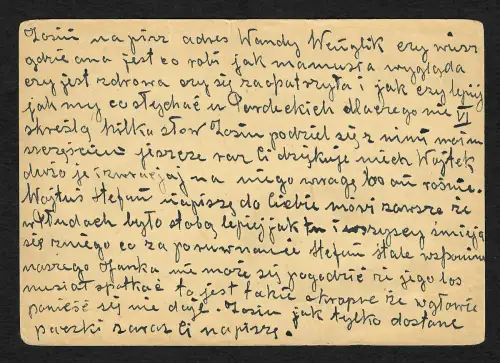 Zosiu napisz adres Wandy Weuglik czy wiesz
gdzie ona jest co robi jak mamusia wygląda
czy jest zdrowa czy się zaopatrzyła i jak czy lepiej
jak my co słychać u Pardeckich dlaczego nie VI
skreślą kilka słow Zosiu podziel się z nimi moim
szczęściem jeszcze raz Ci dziękuje niech Wojtek
dużo je i zwracaj na niego uwagę bo on rośnie.
Wojtuś Stefan napiszę do Ciebie mówi zawsze że
w Rudach było stobą lepiej jak tu i wszyscy śmieją
się zniego co za porównanie Stefan stale wspomina
naszego Janka nie może się pogodzić że jego los
musiał spotkać to jest takie okropne że w głowie
pomieść się nie daje. Zosiu jak tylko dostanę
paczki zaraz Ci napiszę.